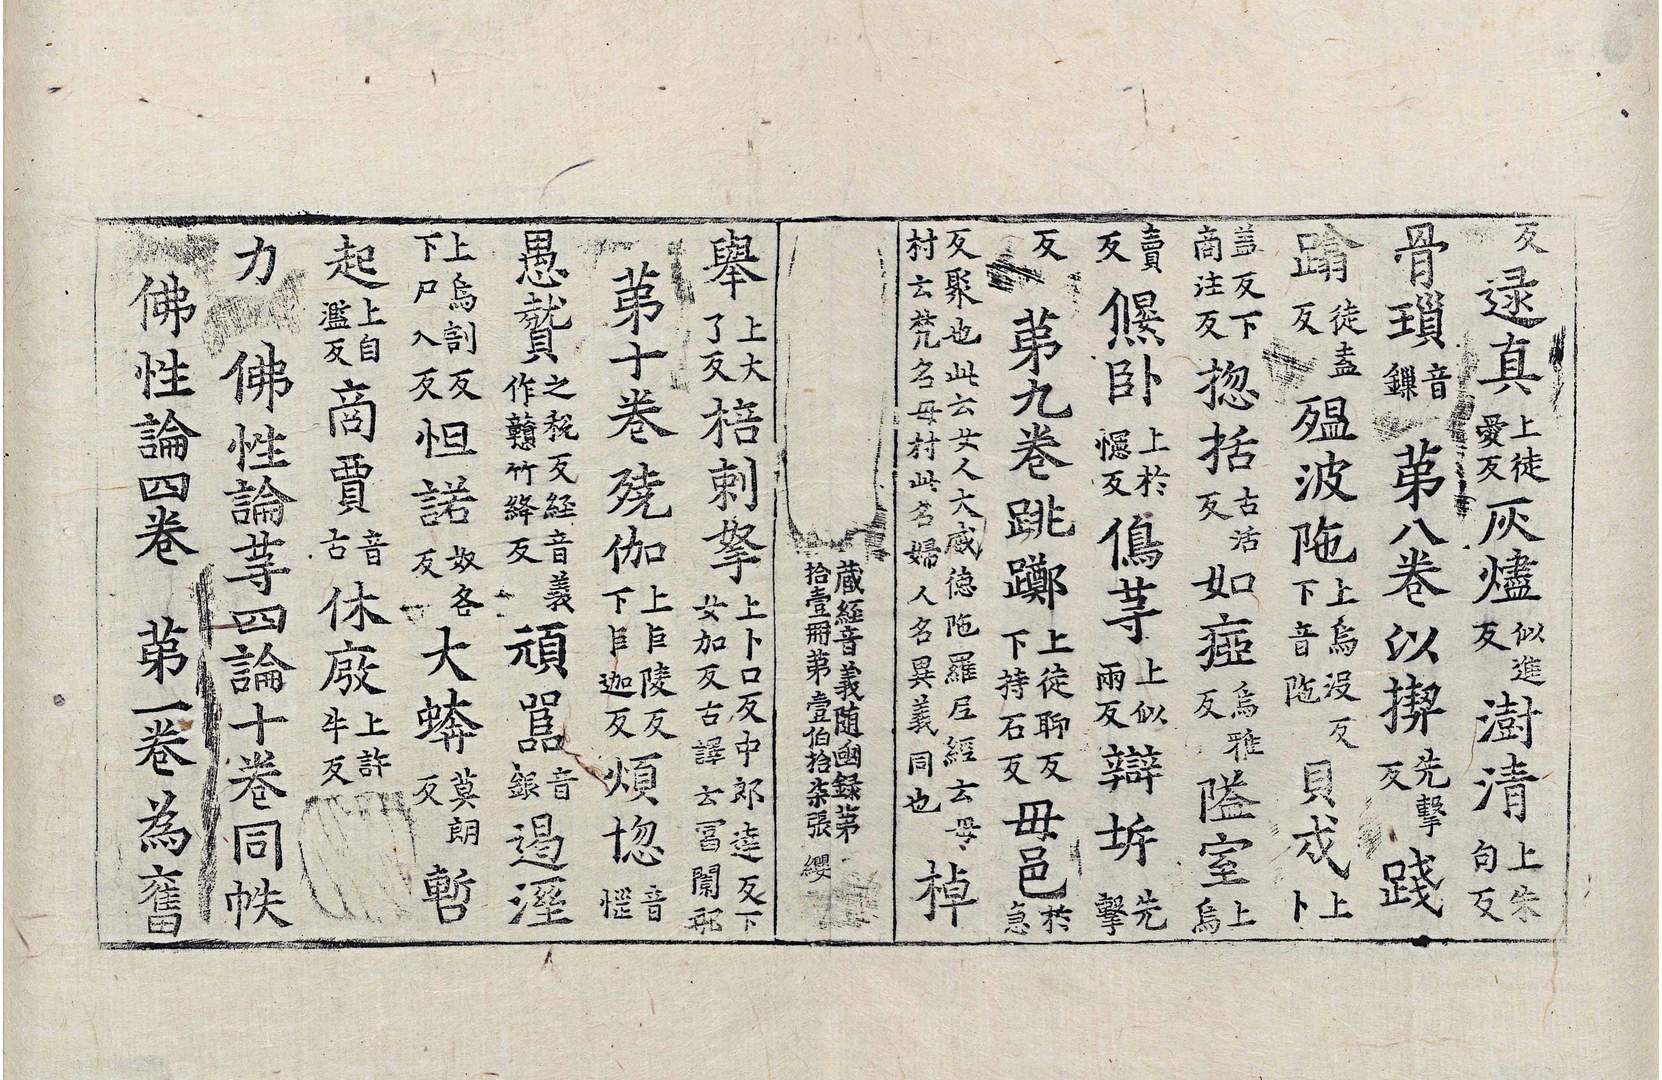 反 逯真 上徒愛反 灰燼 似進反 澍清 上朱句反
骨瑣 音鏁 第八卷 以揳 先擊反 踐
蹹 徒盍反 殟波陁 上烏没反下音陁 貝戍 上卜
盖反下商注反 揔括 古活反 如瘂 烏雅反 隘室 上烏
賣反 偃卧 上於幰反 傷䓁 上似兩反 辯坼 先擊
反 第九卷 跳躑 上徒聊反下持石反 毋邑 於急
反聚也此云女人大咸德陁羅尼經云毋村云梵名毋村此名婦人名異義同也 棹
藏經音義随凾録第拾壹冊第壹伯拾柒張 纓
舉 上大了反 棓剌拏 上卜口反中郎達反下女加反古譯云冨闌那
第十卷 殑伽 上巨陵反下巨迦反 煩惚 音惱
愚贇 之稅反經音義作戇竹絳反 頑嚚 音銀 遏溼
上烏割反下尸入反 怛諾 奴各反 大蟒 莫朗反 暫
起 上自濫反 商賈 音古 休廢 上許牛反
力 佛性論䓁四論十卷同帙
佛性論四卷 第一卷 為奮